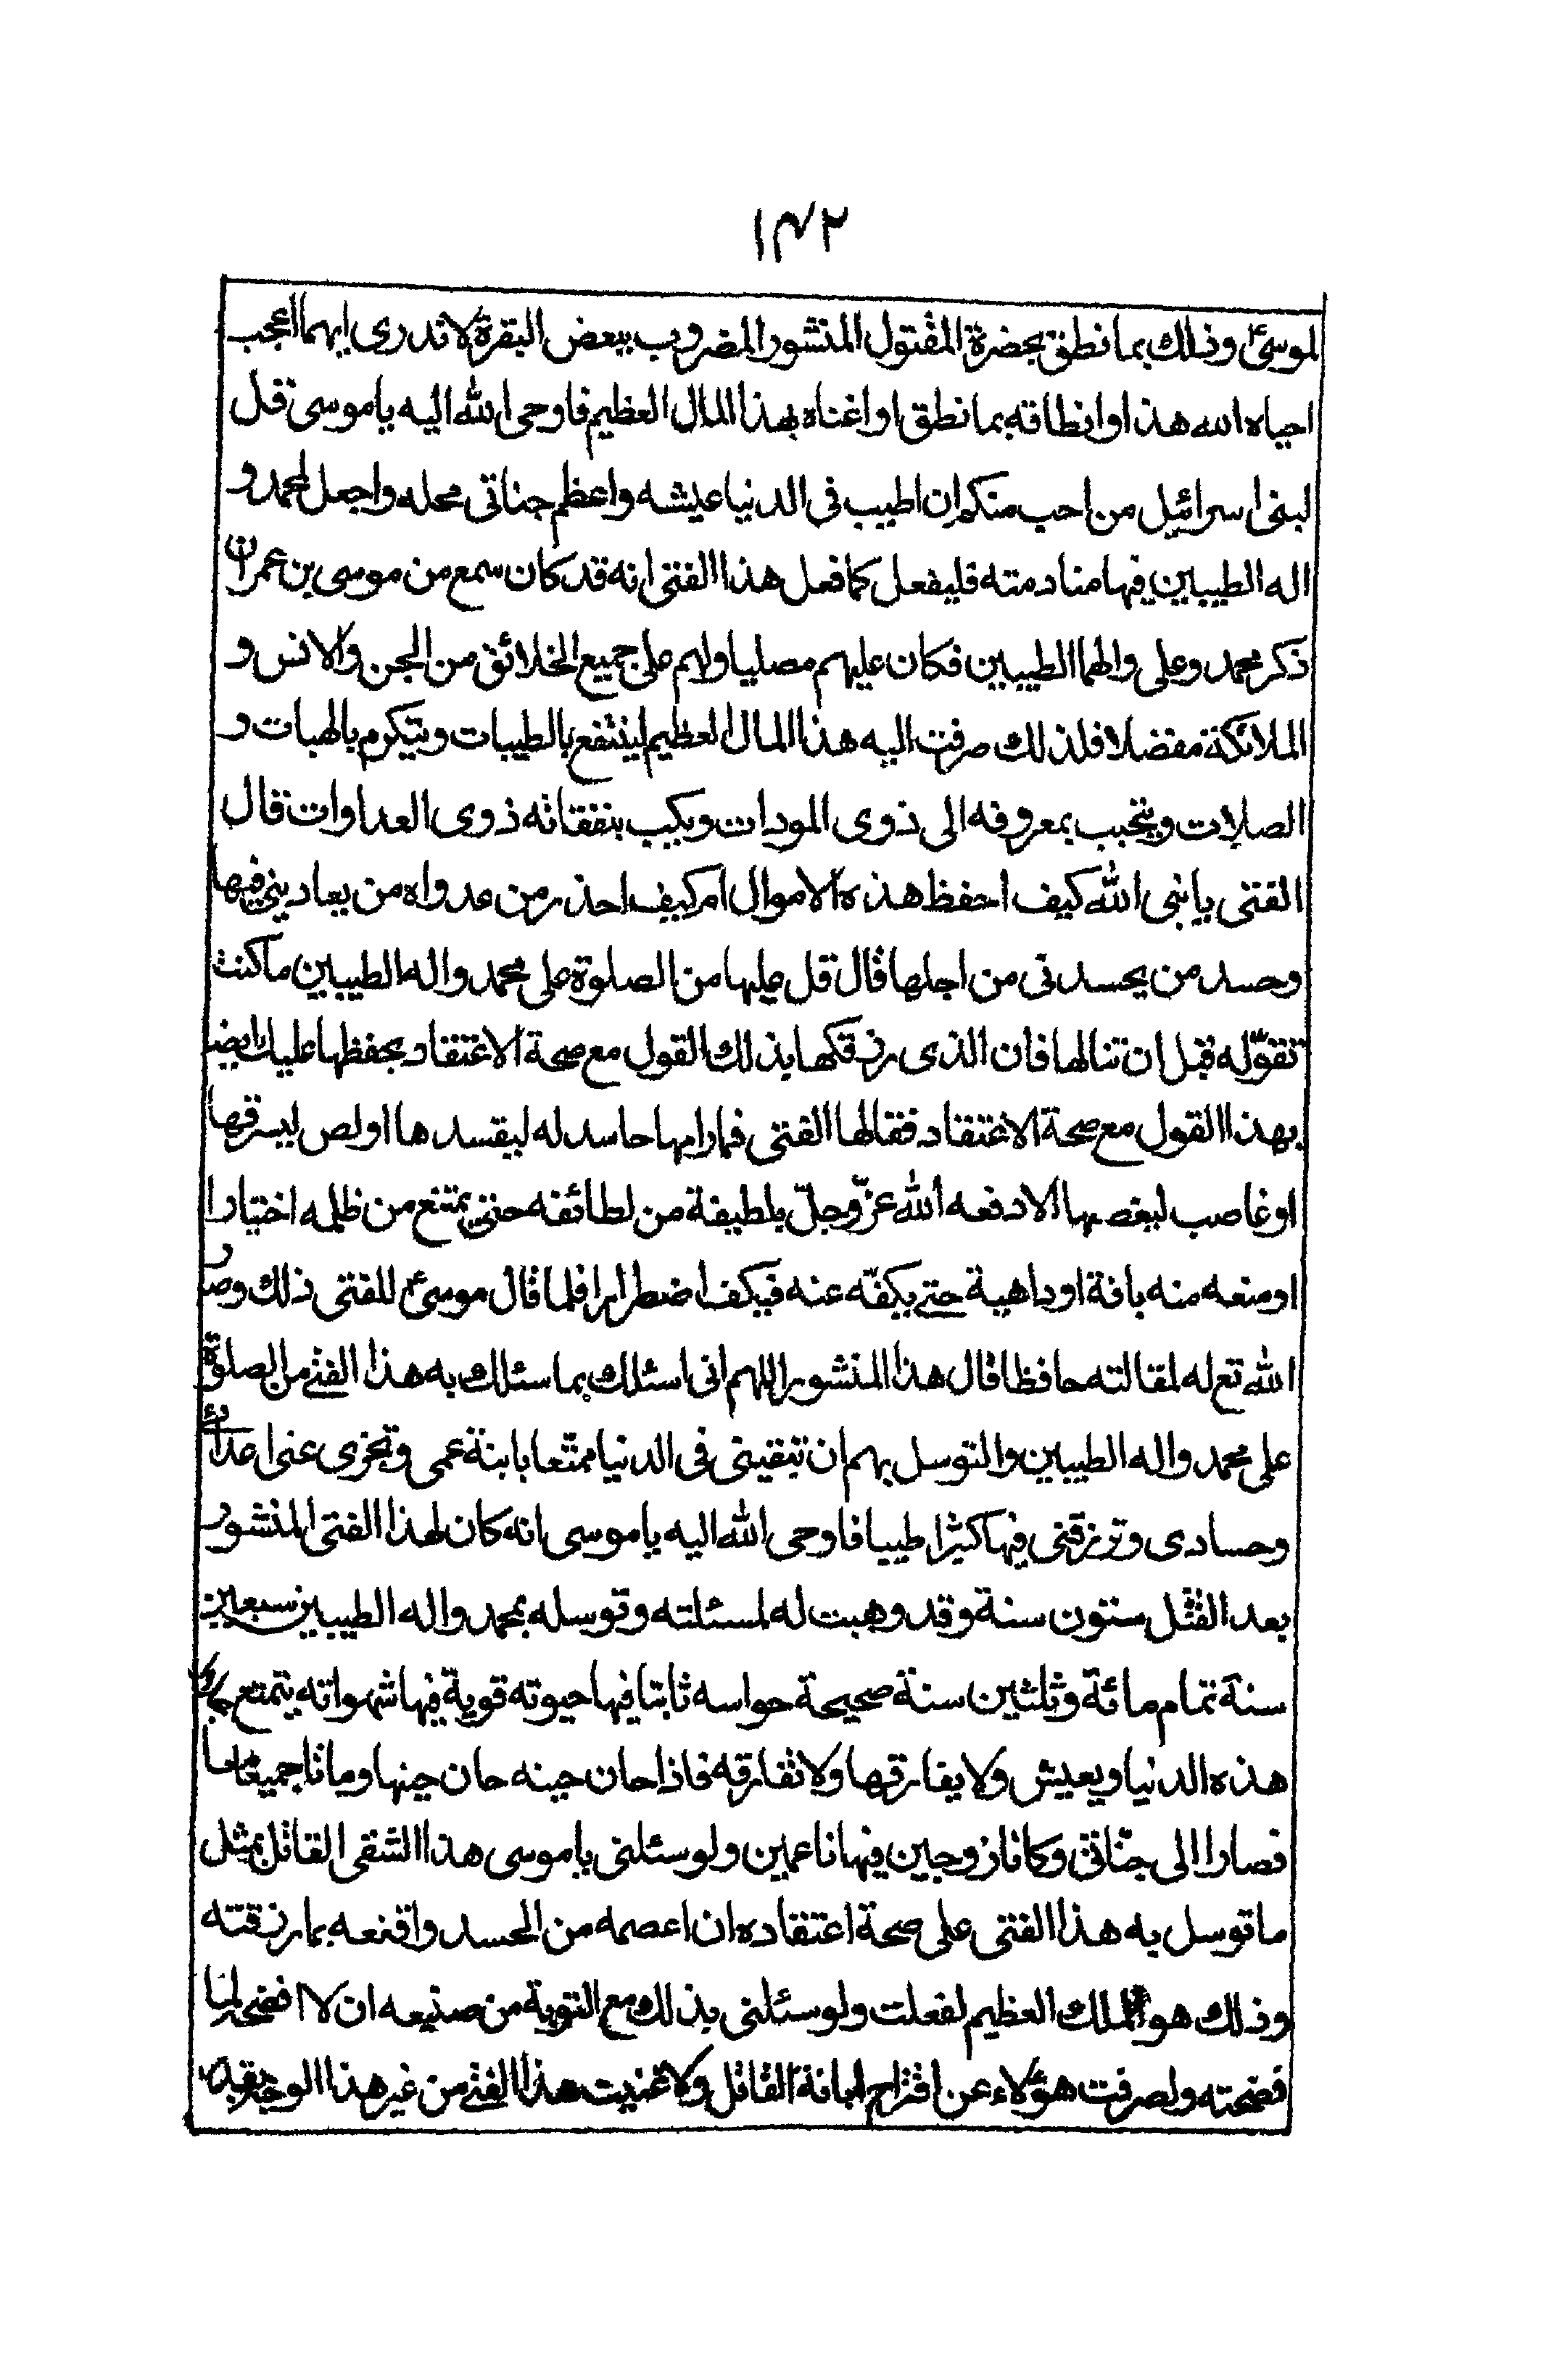 ۱۴۲
لموسیؑ وذلك بما نطق بحضرة المقتول المنشور المضروب ببعض البقرة لا تدری ایهما اعجب
احیاه الله هذا وانطاقه بما نطق او اغناه بهذا المال العظیم فاوحی الله الیه یا موسی قل
لبنی اسرائیل من احب منکم ان اطیب فی الدنیا عیشه واعظم جناتی محله واجعل لمحمد و
اله الطیبین فیها منادمته فلیفعل کما فعل هذا الفتی انه قد کان سمع من موسی بن عمران
ذکر محمد وعلی والهما الطیبین فکان علیهم مصلیا ولهم علی جمیع الخلائق من الجن والانس و
الملائکة مفضلا فلذلك صرفت الیه هذا المال العظیم لینتفع بالطیبات ویتکرم بالهبات و
الصلات ویتحبب بمعروفه الی ذوی المودات ویکبب بنفقاته ذوی العداوات قال
الفتی یا نبی الله کیف احفظ هذه الاموال ام کیف احذر من عدواه من یعادینی فیها
وحسد من یحسدنی من اجلها قال قل علیها من الصلوة علی محمد واله الطیبین ما کنت
تقوّله قبل ان تنالها فان الذی رزقکها بذلك القول مع صحة الاعتقاد یحفظها علیك ایضا
بهذا القول مع صحة الاعتقاد فقالها الفتی فما رامها حاسد له لیفسدها او لص لیسرقها
او غاصب لیغصبها الا دفعه الله عزّ وجلّ بلطیفة من لطائفه حتی یمتنع من ظلمه اختیارا
او منعه منه بافة او داهیة حتی یکفّه عنه فیکف اضطرارا فلما قال موسیؑ للفتی ذلك وصار
الله تع له لمقالته حافظا قال هذا المنشور اللهم انی اسئلك بما سئلك به هذا الفتی من الصلوة
علی محمد واله الطیبین والتوسل بهم ان تبقینی فی الدنیا ممتّعا بابنة عمی وتجزی عنی اعدائی
وحسادی وترزقنی فیها کثیرا طیبا فاوحی الله الیه یا موسی انه کان لهذا الفتی المنشور
بعد القتل ستون سنة وقد وهبت له لمسئلته وتوسله بمحمد واله الطیبین سبعین
سنة تمام مائة وثلثین سنة صحیحة حواسه ثابتا فیها حیوته قویة فیها شهواته یتمتع بحلال
هذه الدنیا ویعیش ولا یفارقها ولا تفارقه فاذا حان حینه حان حینها وماتا جمیعا معا
فصارا الی جنّاتی وکانا زوجین فیها ناعمین ولو سئلنی یا موسی هذا الشقی القاتل بمثل
ما توسل به هذا الفتی علی صحة اعتقاده ان اعصمه من الحسد واقنعه بما رزقته
وذلك هو الملك العظیم لفعلت ولو سئلنی بذلك مع التوبة من صنیعه ان لا افضحه لما
فضحته ولصرفت هؤلاء عن اقتراح ابانة القاتل ولاغنیت هذا الفتی من غیر هذا الوجه بقدر